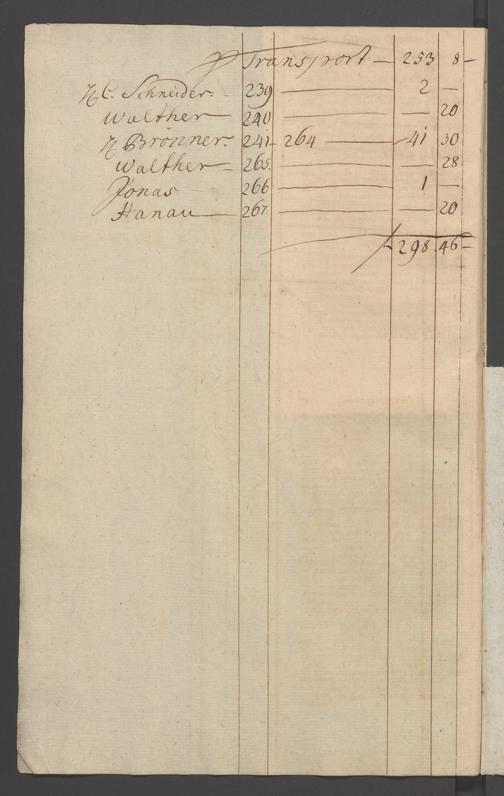 p Transport — 253 8 —
H C. Schneider. 239 — 2 —
Walther — 240 — — 20
H Brönner. 241 - 264 — 41 30
Walther — 265. — — 28
Jonas 266 — 1 —
Hanau — 267 — — 20
298. 46 —